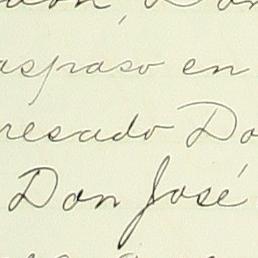 aspaso en
resado Do
Don José